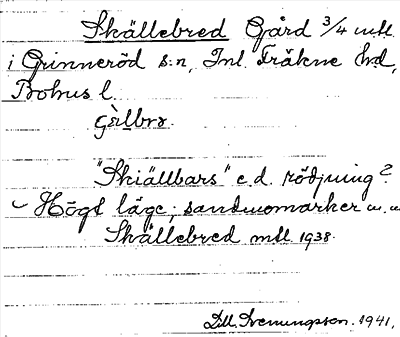 Skällebred Gård 3/4 mtl
i Grinneröd s:n, Inl. Fräkne hd,
Bohus l.
"Skiällbars" e.d. röjning?
Högt läge; sandmomarker
Skällebred mtl. 1938.
1941.